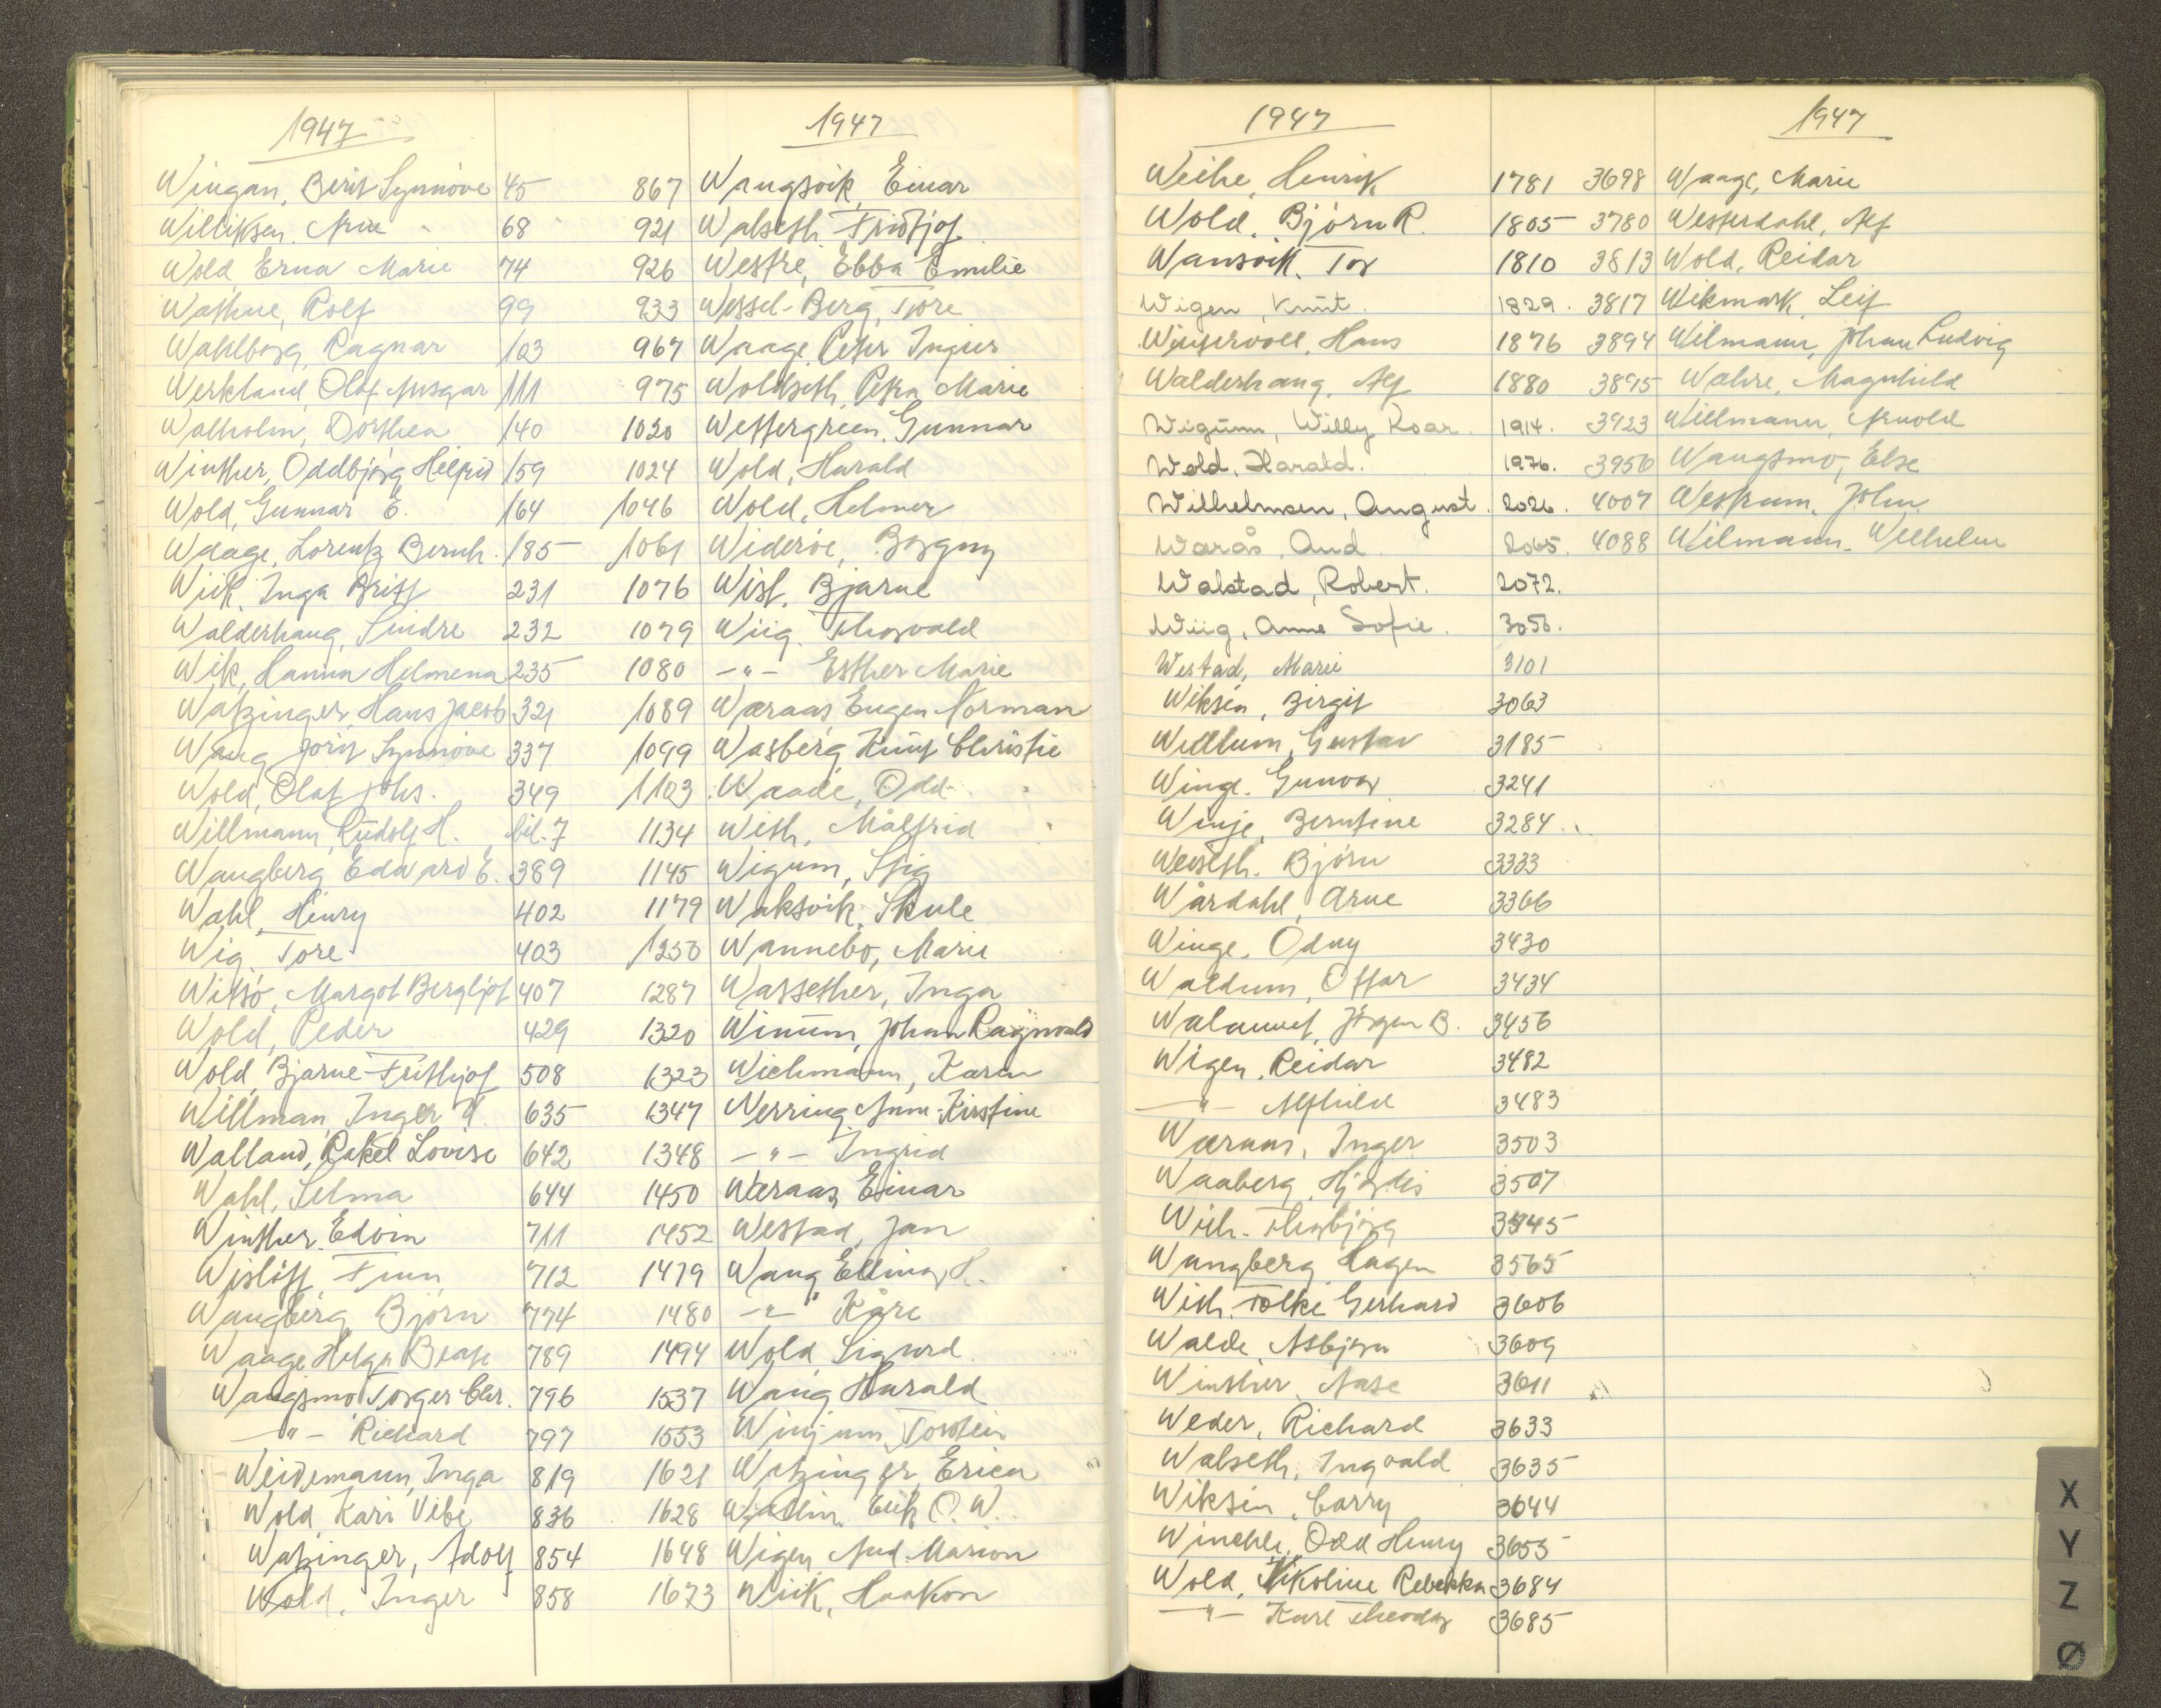 1947
Wingan, Berit Synnöve 45
Williksen, Arne 68
Wold, Erna Marie 74
Wathne, Rolf 99
Wahlborg, Ragnar 103
Werkland, Olaf Ansgar 111
Walholm, Dorthea 140
Winther, Oddbjörg Helfrid 159
Wold, Gunnar E. 164
Waage, Lorentz Bernh. 185
Wiik, Inga Britt 231
Walderhaug, Sindre 232
Wik, Hanna Helmena 235
Watzinger, Hans Jacob 321
Wang Jorit Synnöve 337
Wold, Olaf Johs. 349
Willmann, Rudolf H. bil. 7
Wangberg, Edvard E. 389
Wahl, Henry 402
Wig, Tore 403
Witsö, Margot Bergljot 407
Wold, Peder 429
Wold, Bjarne Frithjof 508
Willman, Inger 635
Walland, Rakel Lovise 642
Wahl, Selma 644
Winther, Edvin 711
Wislöff, Finn 712
Wangberg, Björn 774
Waage Helga Beate 789
Wangsmo, Torger Chr. 796
—"— Richard 797
Weidemann, Inga 819
Wold, Kari Vibe 836
Watzinger, Adolf 854
Wold, Inger 858
1947
867 Wangsvik, Einar
921 Walseth Fridtjof
926 Westre, Ebba Emilie
933 Wessel-Berg, Tore
967 Waage, Peter Ingier
975 Woldseth, Petra Marie
1020 Westergreen, Gunnar
1024 Wold, Harald
1046 Wold, Helmer
1061 Wideröe, Borgny
1076 Wist, Bjarne
1079 Wiig, Thorvald
1080 —"— Esther Marie
1089 Wæraas, Eugen Norman
1099 Wasberg, Knut Christie
1103 Waade, Odd
1134 With, Målfrid
1145 Wigum, Stig
1179 Waksvik, Skule
1250 Wannebo, Marie
1287 Wassether, Inga
1320 Winum, Johan Ragnvald
1323 Wichmann, Karen
1347 Werring, Ann-Kirstine
1348 —"— Ingrid
1450 Wæraas, Einar
1452 Westad, Jan
1479 Wang Elling H.
1480 —"— Kåre
1494 Wold, Sigurd
1537 Wang Harald
1553 Winjum, Torstein
1621 Watzinger, Erica
1628 Wallin, Erik O. W.
1648 Wigen, Aud Marion
1673 Wiik, Haakon
1947
Weihe, Henrik 1781
Wold, Björn R. 1805
Wansvik, Tor 1810
Wigen, Knut. 1829.
Wintervoll, Hans 1876
Walderhaug, Alf 1880
Wigum, Willy Roar. 1914.
Wold, Harald. 1976.
Wilhelmsen, August. 2026.
Warås, Aud. 2065.
Walstad, Robert. 2072.
Wiig, Anne Sofie. 3056.
Westad, Marie 3101
Wiksén, Birgit 3063
Widlum, Gustav 3185
Winge, Gunvor 3241
Winje, Berntine 3284
Weiseth, Björn 3333
Wårdahl, Arne 3366
Winge, Odny 3430
Waldum, Ottar 3434
Walaunet, Jörgen B. 3456
Wigen, Reidar 3482
—"— Alfhild 3483
Wæraas, Inger 3503
Waaberg, Hjördis 3507
With, Thorbjörg 3545
Wangberg, Hagen 3565
With, Tolke Gerhard 3606
Walde, Asbjörn 3609
Winther, Aase 3611
Weder, Richard 3633
Walseth, Ingvald 3635
Wiksén, Carry 3644
Winche, Odd Henry 3653
Wold, Nikoline Rebekka 3684
—"— Karl Theodor 3685
1947
3698 Waage, Marie
3780 Westerdahl, Alf
3813 Wold, Reidar
3817 Wikmark, Leif
3894 Wilmann, Johan Ludvig
3895 Wahre, Magnhild
3923 Willmann, Arnold
3956 Wangsmo, Else
4007 Westrum, John
4088 Wilmann, Wilhelm
X
Y
Z
Ø